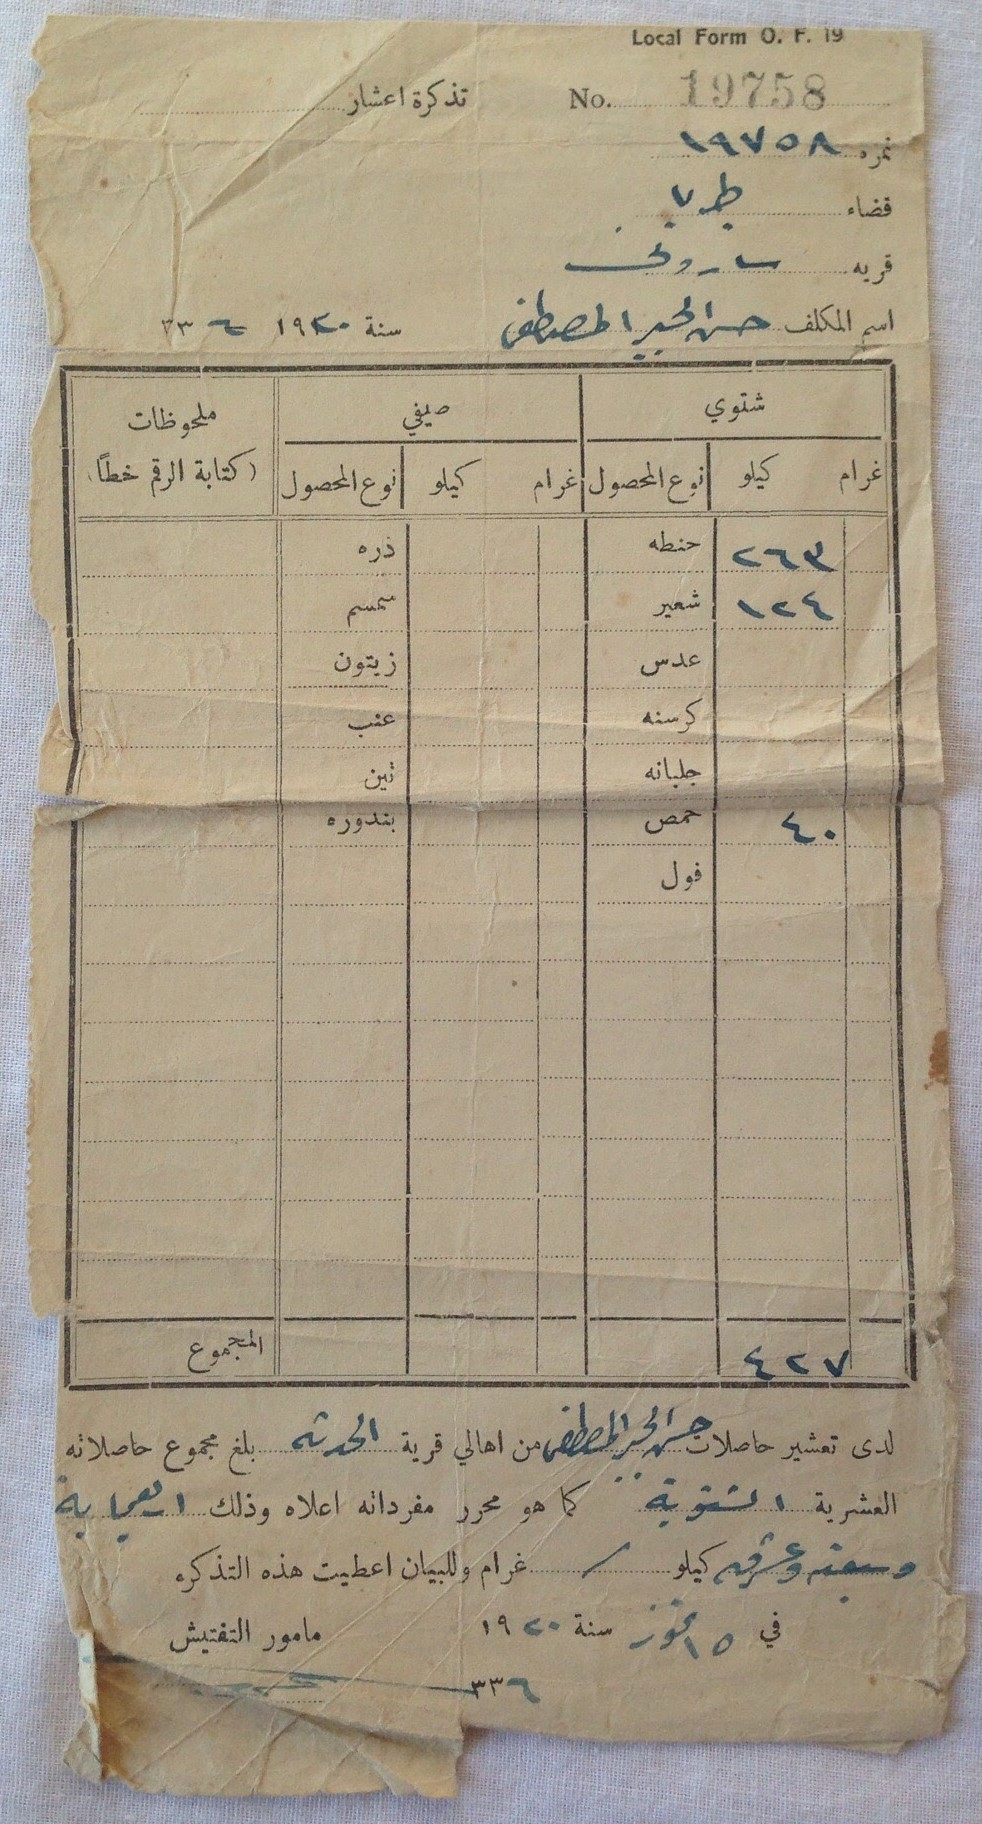 Local Form O. F. 19
تذكرة اعشار No. 19758
نمره ١٩٧٥٨
قضاء طبريا
قريه
اسم المكلف حسن المصطفى سنة ١٩٢٠ ٣٣٦
شتوي صيفي ملحوظات
غرام كيلو نوع المحصول غرام كيلو نوع المحصول (كتابة الرقم خطاً)
٢٦٣ حنطه ذره
١٢٤ شعير سمسم
عدس زيتون
كرسنه عنب
جلبانه تين
٤٠ حمص بندوره
فول
٤٢٧ المجموع
لدى تعشير حاصلات حسن المصطفى من اهالي قرية الحدثه بلغ مجموع حاصلاته
العشرية الشتوية كما هو محرر مفرداته اعلاه وذلك اربعماية
وسبعة وعشرون كيلو / غرام وللبيان اعطيت هذه التذكره
في ١٥ تموز سنة ١٩٢٠ مامور التفتيش
٣٣٦